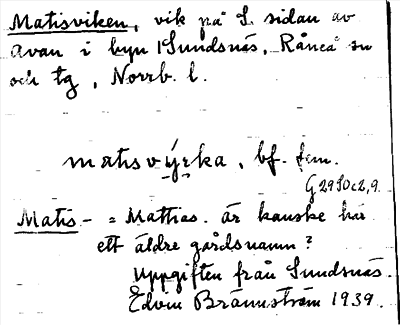 Matisviken, vik på S. sidan av
avan i byn Sundsnäs, Råneå sn
och tg, Norrb. l.
matisvýrka, bf. fem.
G 29 S0c2,9.
Matis- = Mathias. är kanske här
ett äldre gårdsnamn?
Uppgiften från Sundsnäs.
Edvin Brännström 1939.